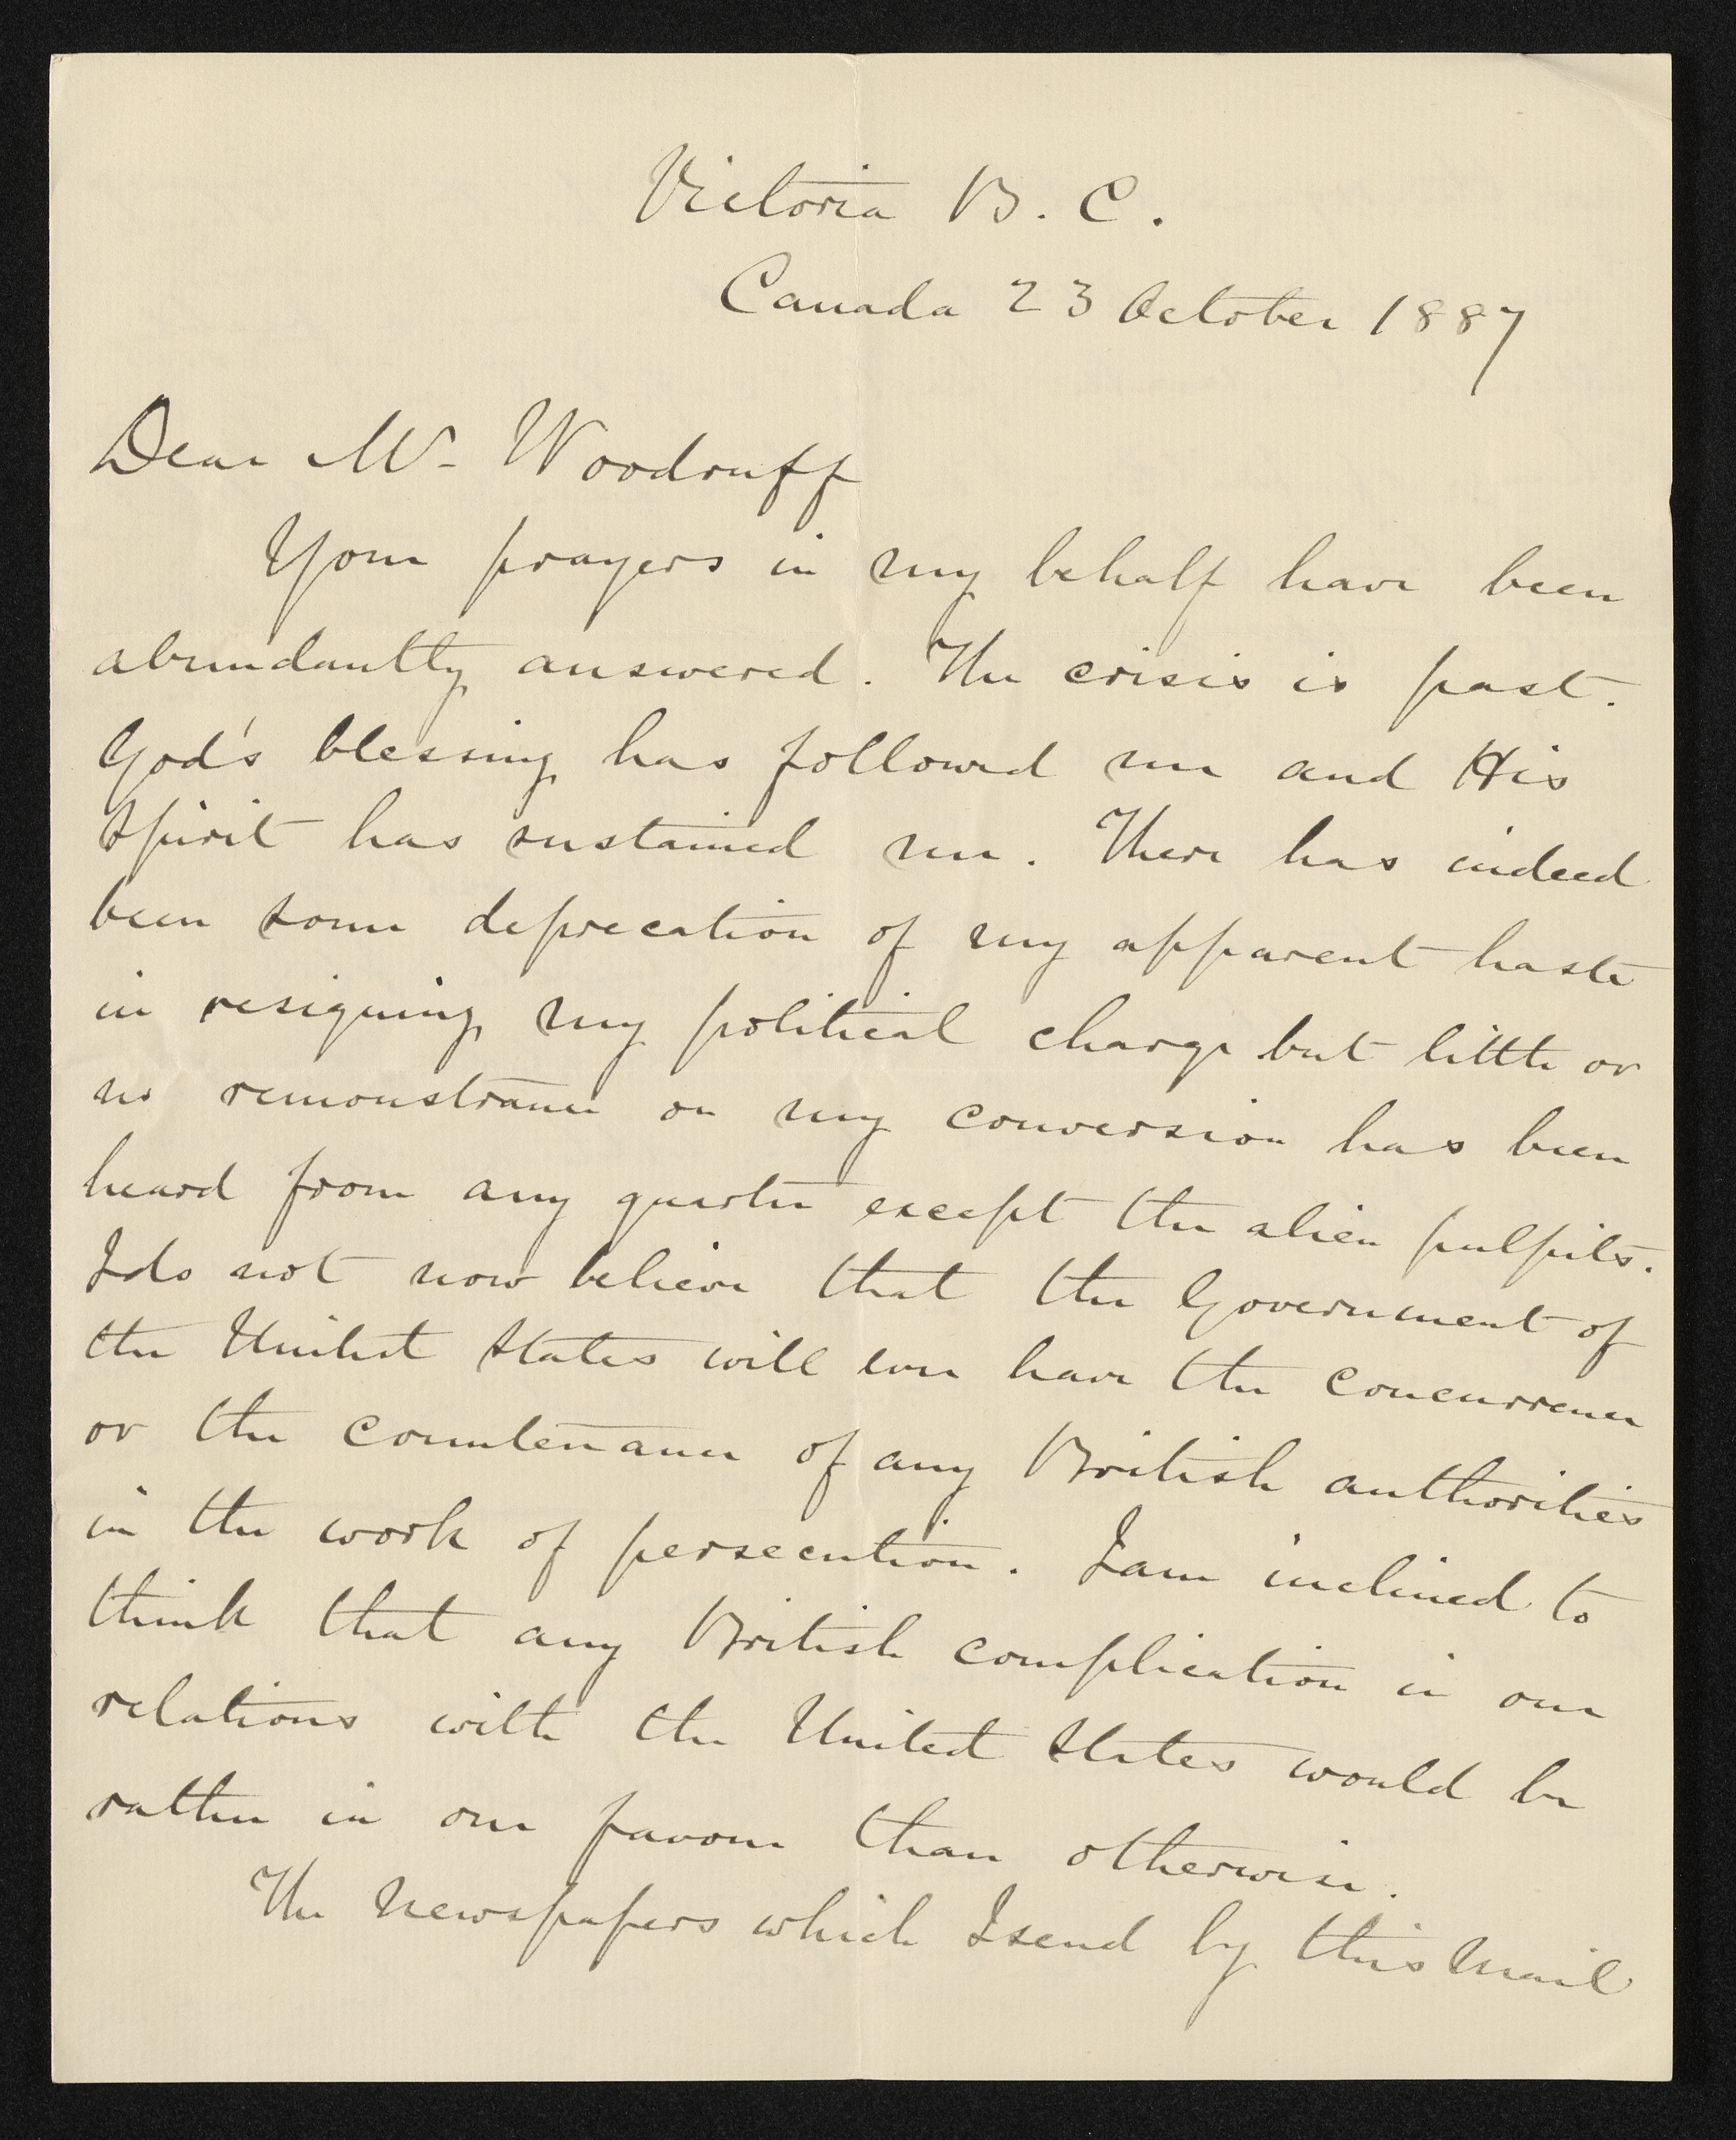 Victoria B. C.
Canada 23 October 1887
Dear Mr- Woodruff
Your prayers in my behalf have been
abundantly answered. The crisis is past.
God's blessing has followed me and His
Spirit has sustained me. There has indeed
been some deprecation of my apparent haste
in resigning my political charge but little or
no remonstrance on my conversion has been
heard from any quarter except the alien pulpits.
I do not now believe that the Government of
the United States will ever have the concurrence
or the countenance of any British authorities
in the work of persecution. I am inclined to
think that any British complication in our
relations with the United States would be
rather in our favour than otherwise.
The Newspapers which I send by this Mail